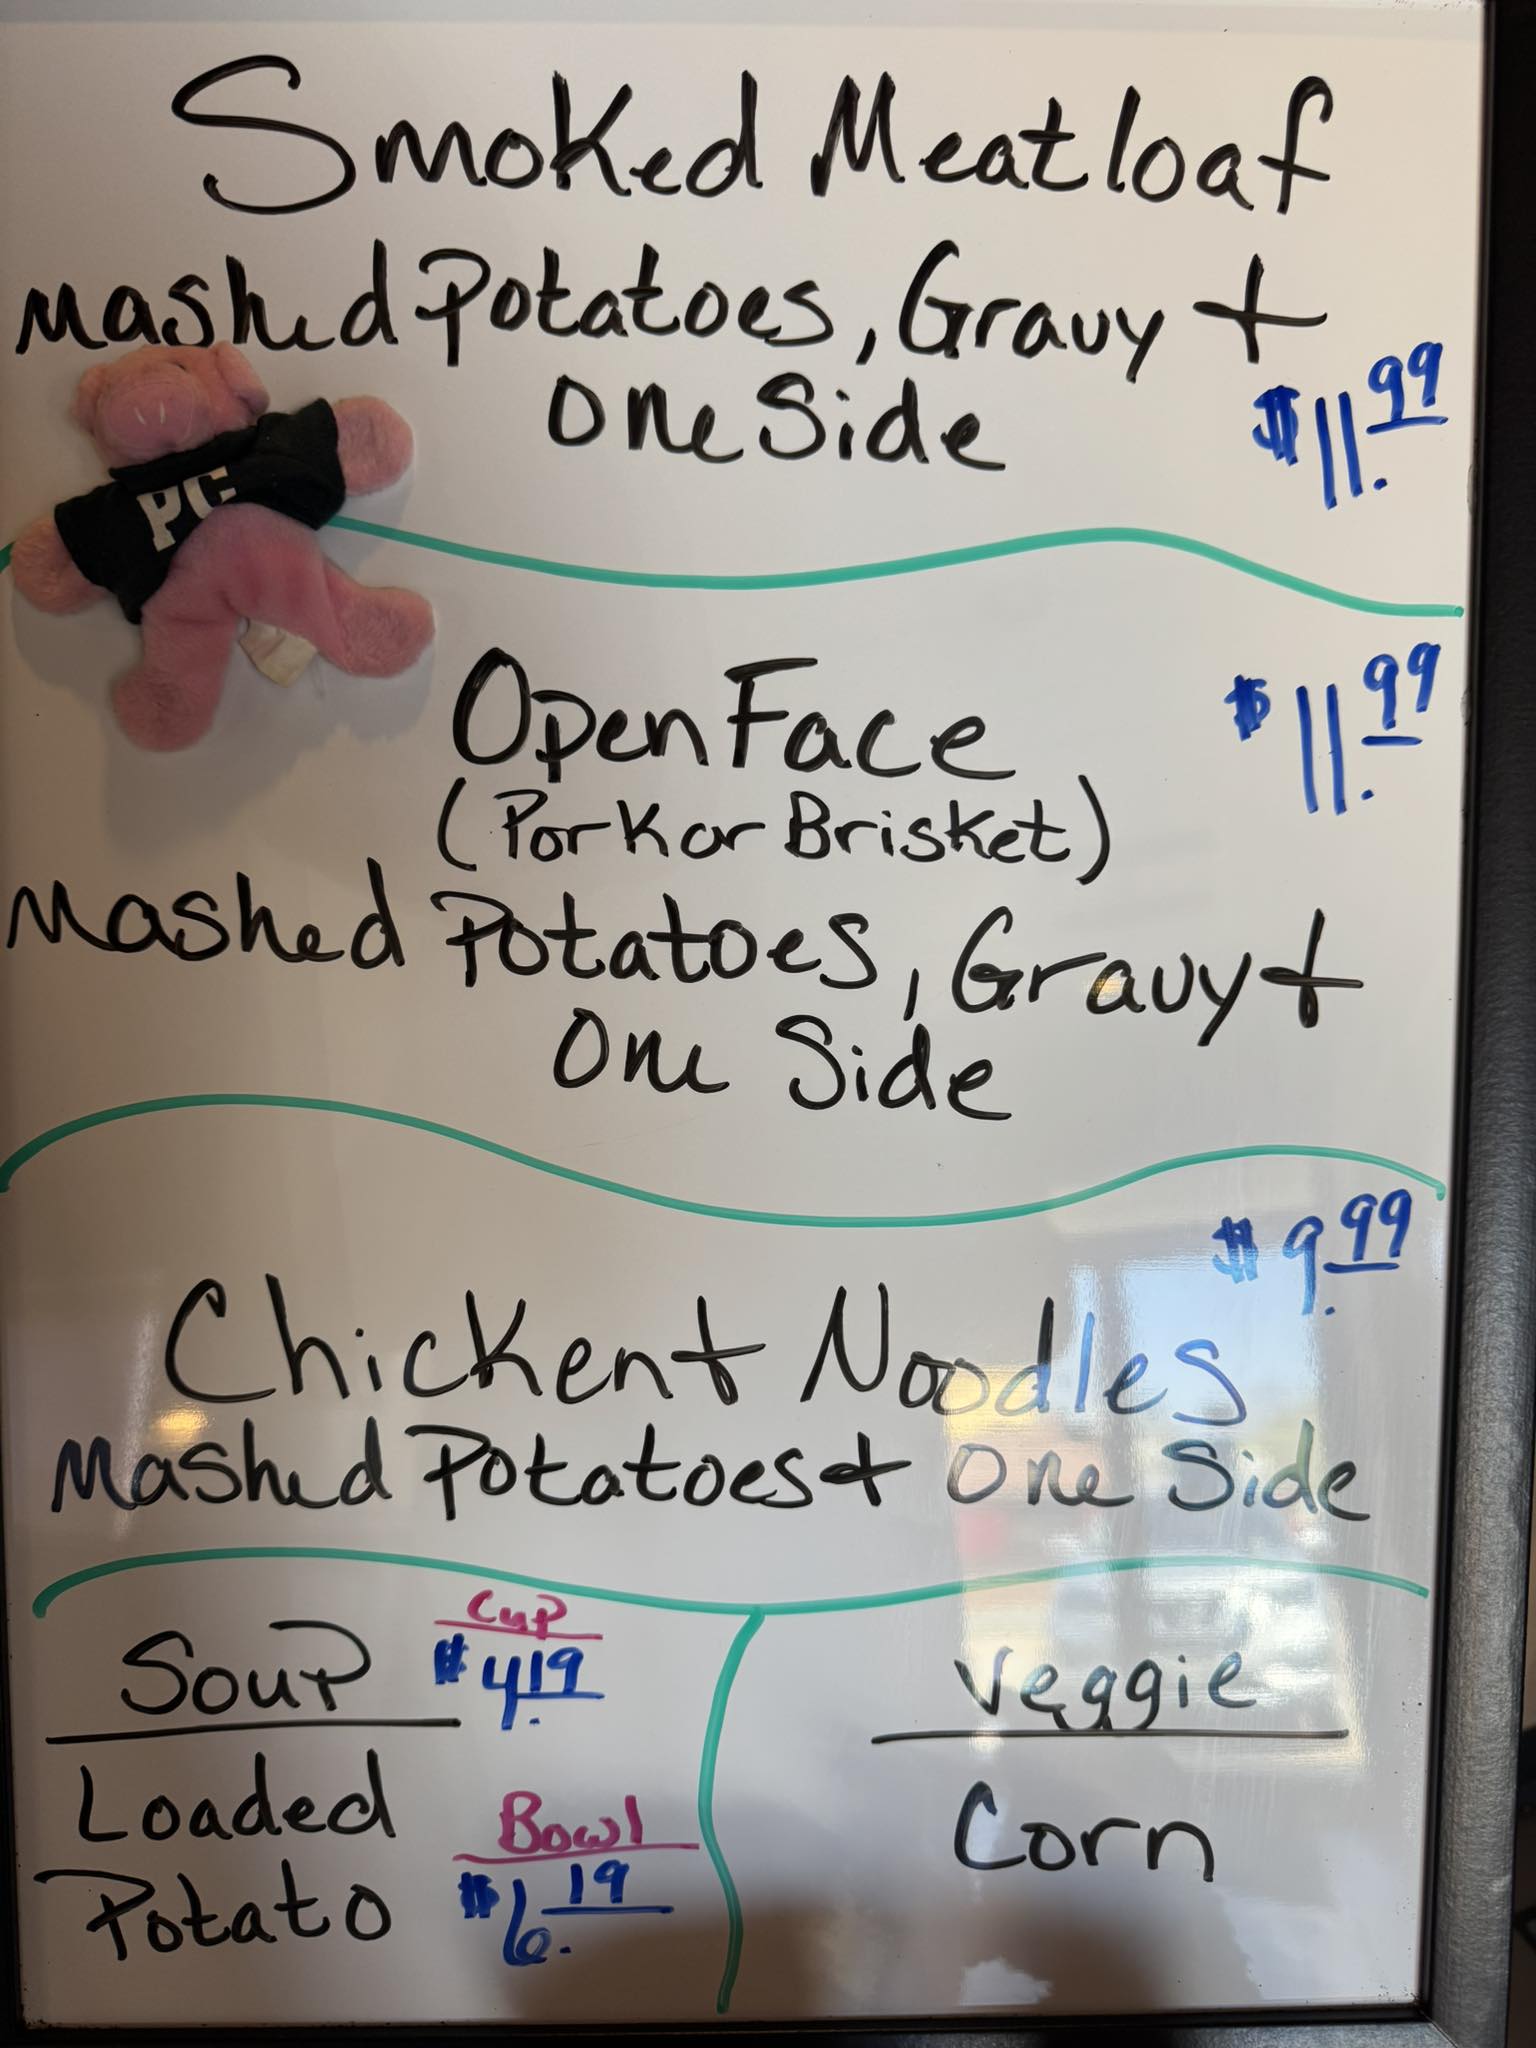 Smoked Meatloaf
Mashed Potatoes, Gravy +
One Side
$11.99
PC
Open Face
$11.99
(Pork or Brisket)
Mashed Potatoes, Gravy +
One Side
$9.99
Chicken + Noodles
Mashed Potatoes + One Side
Soup
Cup
$4.19
Loaded
Potato
Bowl
$6.19
Veggie
Corn